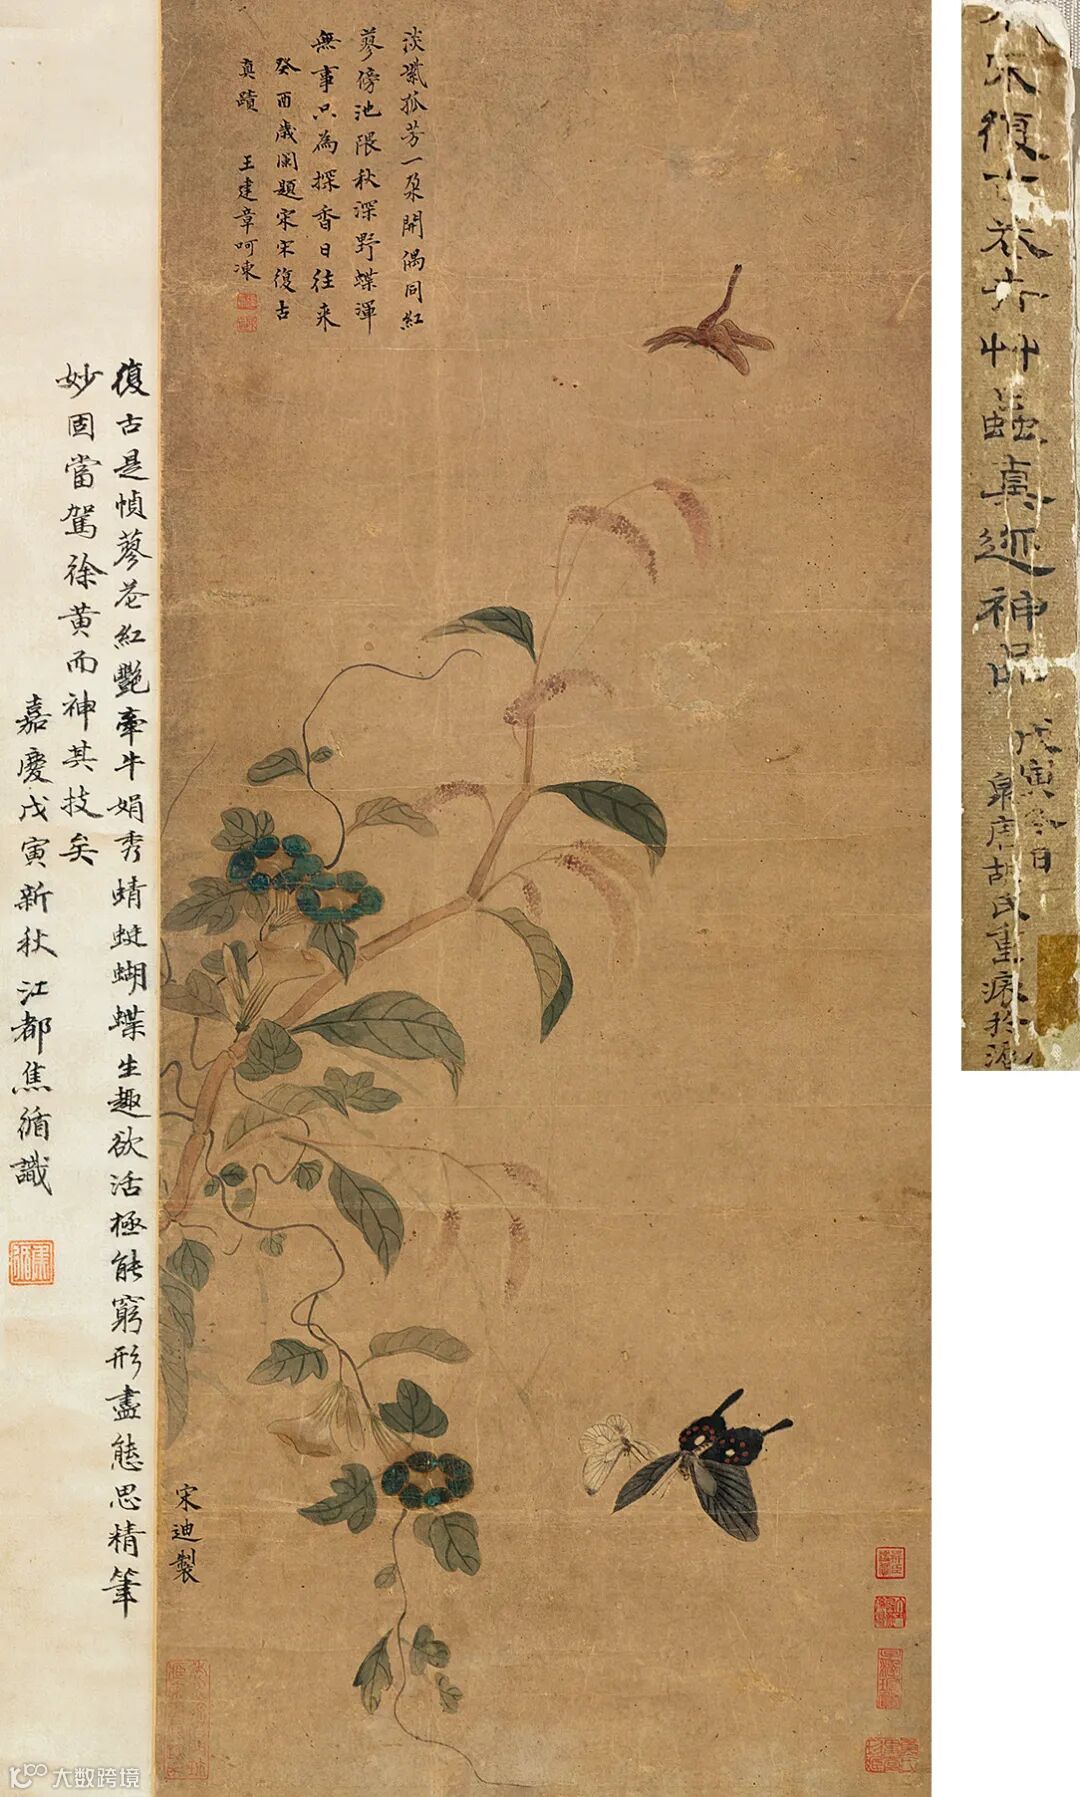 淡紫孤芳一朵開偶同紅
蓼傍池隈秋深野蝶渾
無事只為探香日往来
癸酉歲閏題宋宋復古
真蹟 王建章呵凍
復古是幀蓼花紅艷牽牛娟秀蜻蜓蝴蝶生趣欲活極能窮形盡態思精筆
妙固當駕徐黄而神其技矣
嘉慶戊寅新秋江都焦循識
宋迪製
宋復古花卉艸蟲真迹神品
戊寅冬日
胡氏重裱於滬
大数跨境